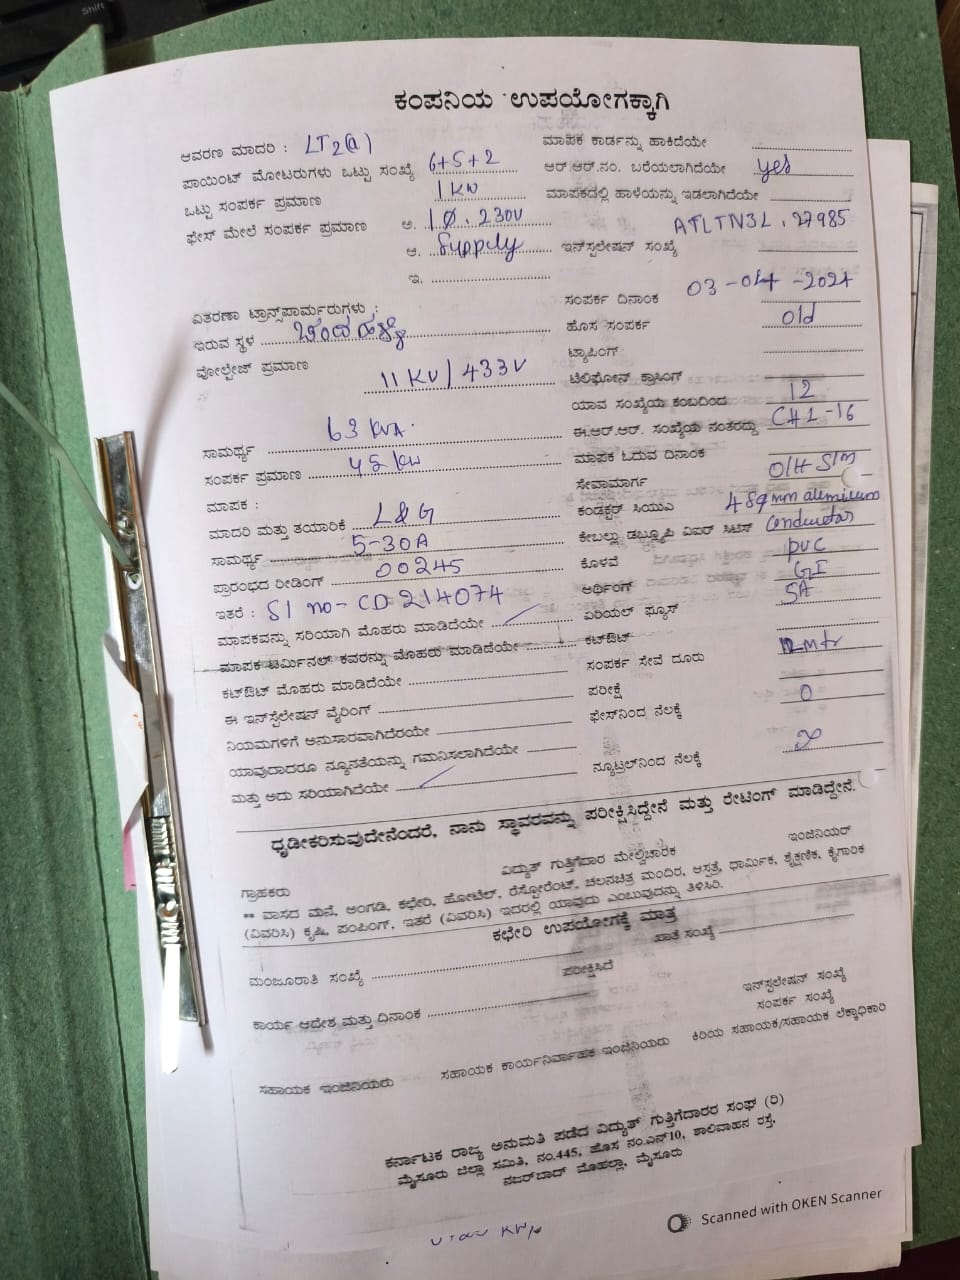 ಕಂಪನಿಯ ಉಪಯೋಗಕ್ಕಾಗಿ
ಆವರಣ ಮಾದರಿ : LT2(a)
ಪಾಯಿಂಟ್ ಮೋಟರುಗಳು ಒಟ್ಟು ಸಂಖ್ಯೆ 6+5+2
ಒಟ್ಟು ಸಂಪರ್ಕ ಪ್ರಮಾಣ 1 KW
ಫೇಸ್ ಮೇಲೆ ಸಂಪರ್ಕ ಪ್ರಮಾಣ ಅ. 1Ø. 230V
ಆ. Supply
ಇ.
ಮಾಪಕ ಕಾರ್ಡನ್ನು ಹಾಕಿದೆಯೇ
ಆರ್.ಆರ್.ನಂ. ಬರೆಯಲಾಗಿದೆಯೇ yes
ಮಾಪಕದಲ್ಲಿ ಹಾಳೆಯನ್ನು ಇಡಲಾಗಿದೆಯೇ
ಇನ್‌ಸ್ಪಲೇಷನ್ ಸಂಖ್ಯೆ 27985
ವಿತರಣಾ ಟ್ರಾನ್ಸ್‌ಪಾರ್ಮರುಗಳು :
ಇರುವ ಸ್ಥಳ
ವೋಲ್ಟೇಜ್ ಪ್ರಮಾಣ 11 KV/433V
ಸಾಮರ್ಥ್ಯ 63 KVA
ಸಂಪರ್ಕ ಪ್ರಮಾಣ KW
ಮಾಪಕ :
ಮಾದರಿ ಮತ್ತು ತಯಾರಿಕೆ L&G
ಸಾಮರ್ಥ್ಯ 5-30A
ಪ್ರಾರಂಭದ ರೀಡಿಂಗ್ 00245
ಇತರೆ : Sl no- CD 214074
ಮಾಪಕವನ್ನು ಸರಿಯಾಗಿ ಮೊಹರು ಮಾಡಿದೆಯೇ
ಮಾಪಕ ಟರ್ಮಿನಲ್ ಕವರನ್ನು ಮೊಹರು ಮಾಡಿದೆಯೇ
ಕಟ್‌ಔಟ್ ಮೊಹರು ಮಾಡಿದೆಯೇ
ಈ ಇನ್‌ಸ್ಪೆಲೇಷನ್ ವೈರಿಂಗ್
ನಿಯಮಗಳಿಗೆ ಅನುಸಾರವಾಗಿದೆರಯೇ
ಯಾವುದಾದರೂ ನ್ಯೂನತೆಯನ್ನು ಗಮನಿಸಲಾಗಿದೆಯೇ
ಮತ್ತು ಅದು ಸರಿಯಾಗಿದೆಯೇ
ಸಂಪರ್ಕ ದಿನಾಂಕ 03-04-2024
ಹೊಸ ಸಂಪರ್ಕ old
ಟ್ಯಾಪಿಂಗ್
ಟೆಲಿಫೋನ್ ಕ್ರಾಸಿಂಗ್
ಯಾವ ಸಂಖ್ಯೆಯ ಕಂಬದಿಂದ 12
ಈ.ಆರ್.ಆರ್. ಸಂಖ್ಯೆಯ ನಂತರದ್ದು CH1-16
ಮಾಪಕ ಓದುವ ದಿನಾಂಕ
ಸೇವಾಮಾರ್ಗ O/H S/M
ಕಂಡಕ್ಟರ್ ಸಿಯುಎ 4 sqmm aluminium
ಕೇಬಲ್ಲು ಡಬ್ಲ್ಯೂಪಿ ವಿಐರ್ ಸಿಟಿಸಿ conductor
ಕೊಳವೆ PVC
ಆರ್ಥಿಂಗ್ GI
ಏರಿಯಲ್ ಫ್ಯೂಸ್ 5A
ಕಟ್‌ಔಟ್
ಸಂಪರ್ಕ ಸೇವೆ ದೂರು mtr
ಪರೀಕ್ಷೆ
ಫೇಸ್‌ನಿಂದ ನೆಲಕ್ಕೆ 0
ನ್ಯೂಟ್ರಲ್‌ನಿಂದ ನೆಲಕ್ಕೆ
ಧೃಡೀಕರಿಸುವುದೇನೆಂದರೆ, ನಾನು ಸ್ಥಾವರವನ್ನು ಪರೀಕ್ಷಿಸಿದ್ದೇನೆ ಮತ್ತು ರೇಟಿಂಗ್ ಮಾಡಿದ್ದೇನೆ.
ಗ್ರಾಹಕರು ವಿದ್ಯುತ್ ಗುತ್ತಿಗೆದಾರ ಮೇಲ್ವಿಚಾರಕ ಇಂಜಿನಿಯರ್
** ವಾಸದ ಮನೆ, ಅಂಗಡಿ, ಕಛೇರಿ, ಹೋಟೆಲ್, ರೆಸ್ಟೋರೆಂಟ್, ಚಲನಚಿತ್ರ ಮಂದಿರ, ಆಸ್ಪತ್ರೆ, ಧಾರ್ಮಿಕ, ಶೈಕ್ಷಣಿಕ, ಕೈಗಾರಿಕ
(ವಿವರಿಸಿ) ಕೃಷಿ, ಪಂಪಿಂಗ್, ಇತರೆ (ವಿವರಿಸಿ) ಇದರಲ್ಲಿ ಯಾವುದು ಎಂಬುವುದನ್ನು ತಿಳಿಸಿರಿ.
ಕಛೇರಿ ಉಪಯೋಗಕ್ಕೆ ಮಾತ್ರ
ಮಂಜೂರಾತಿ ಸಂಖ್ಯೆ ಖಾತೆ ಸಂಖ್ಯೆ
ಪರೀಕ್ಷಿಸಿದೆ
ಕಾರ್ಯ ಆದೇಶ ಮತ್ತು ದಿನಾಂಕ
ಇನ್‌ಸ್ಪಲೇಷನ್ ಸಂಖ್ಯೆ
ಸಂಪರ್ಕ ಸಂಖ್ಯೆ
ಸಹಾಯಕ ಇಂಜಿನಿಯರು ಸಹಾಯಕ ಕಾರ್ಯನಿರ್ವಾಹಕ ಇಂಜಿನಿಯರು ಕಿರಿಯ ಸಹಾಯಕ/ಸಹಾಯಕ ಲೆಕ್ಕಾಧಿಕಾರಿ
ಕರ್ನಾಟಕ ರಾಜ್ಯ ಅನುಮತಿ ಪಡೆದ ವಿದ್ಯುತ್ ಗುತ್ತಿಗೆದಾರರ ಸಂಘ (ರಿ)
ಮೈಸೂರು ಜಿಲ್ಲಾ ಸಮಿತಿ, ನಂ.445, ಹೊಸ ನಂ.ಎನ್10, ಶಾಲಿವಾಹನ ರಸ್ತೆ,
ನಜರ್‌ಬಾದ್ ಮೊಹಲ್ಲಾ, ಮೈಸೂರು
Scanned with OKEN Scanner
Shift